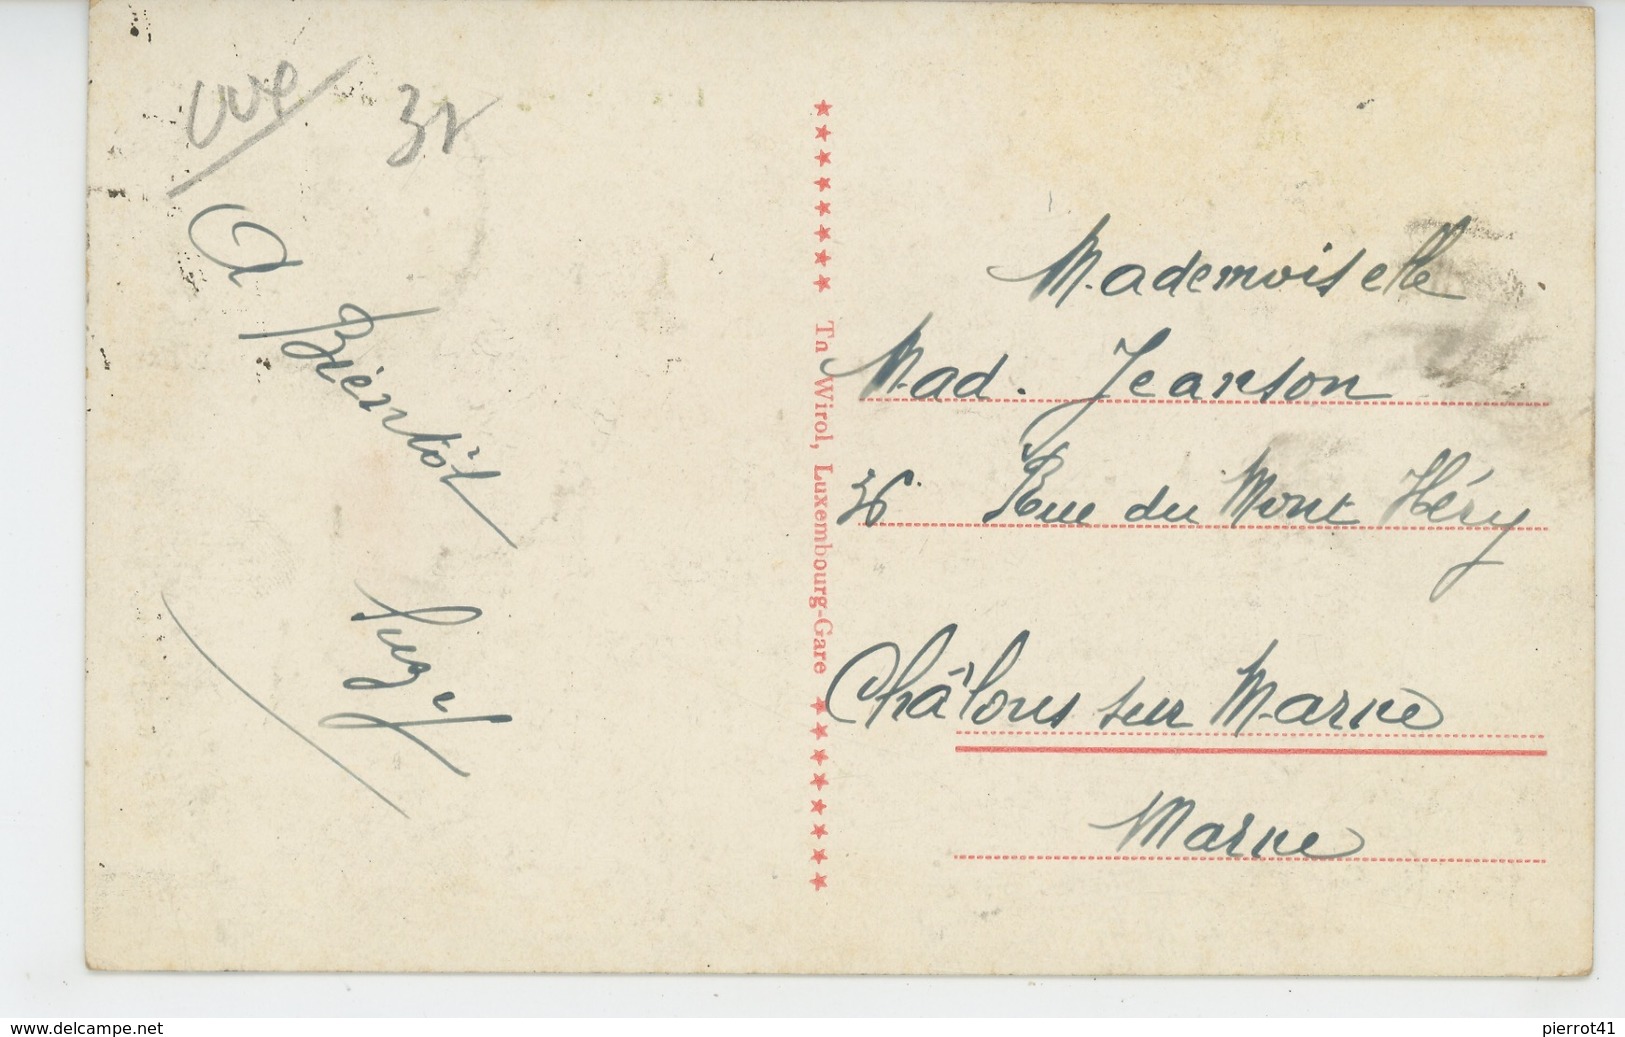 A
Bientôt
Suzy
Th Wirol, Luxembourg-Gare
Mademoiselle
Mad. Jeanson
36 Rue du Mont Héry
Châlons sur Marne
Marne
www.delcampe.net
pierrot41